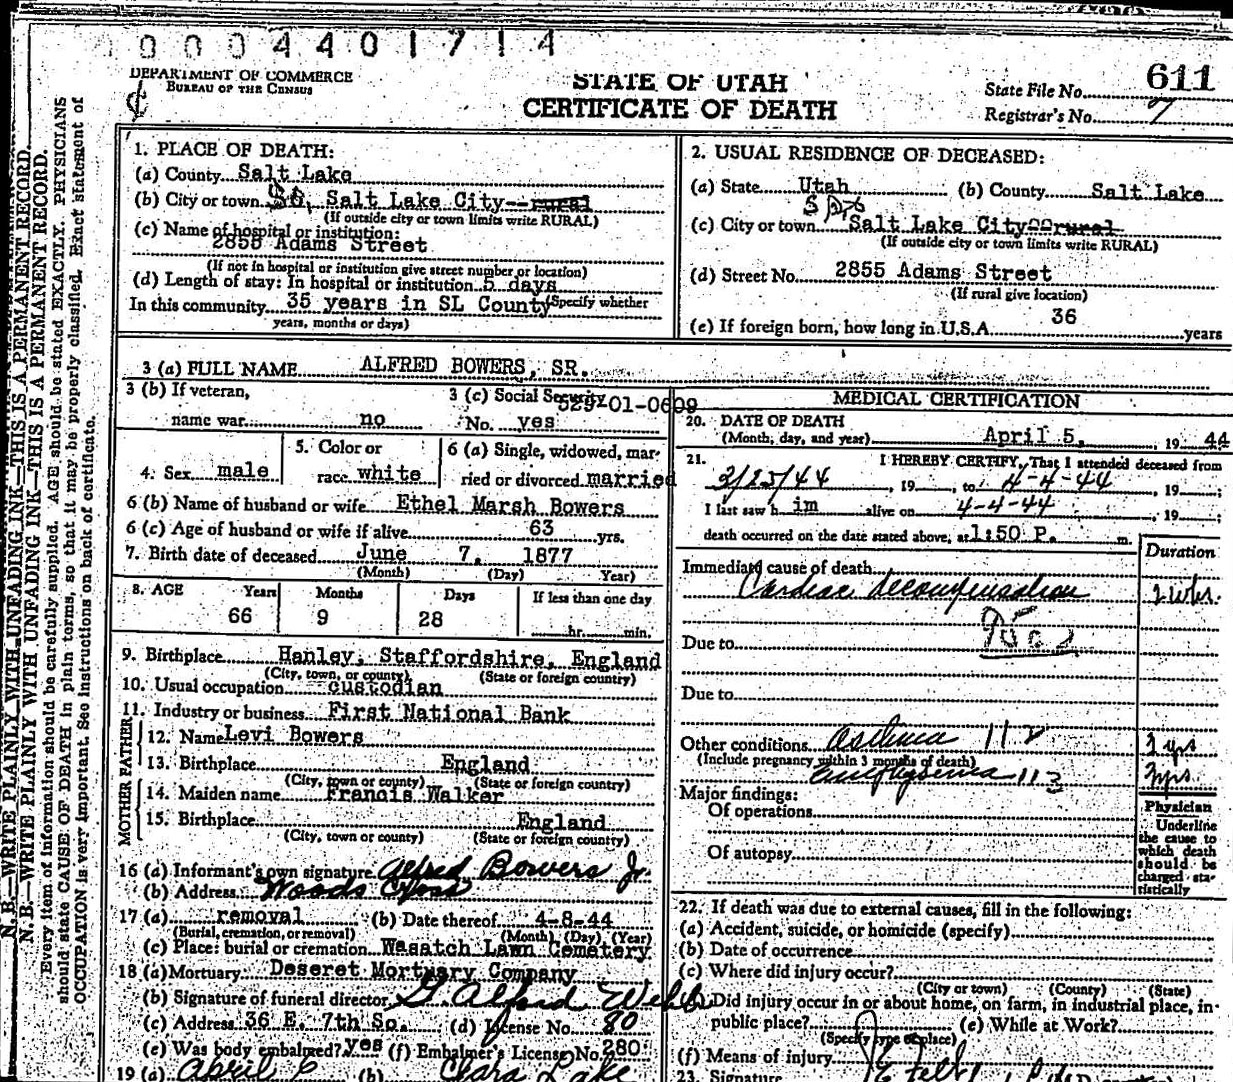 0004401714
DEPARTMENT OF COMMERCE
BUREAU OF THE CENSUS
STATE OF UTAH
CERTIFICATE OF DEATH
State File No. 611
Registrar's No. 7
N. B.—WRITE PLAINLY WITH UNFADING INK—THIS IS A PERMANENT RECORD.
N. B.—WRITE PLAINLY WITH UNFADING INK—THIS IS A PERMANENT RECORD.
Every item of information should be carefully supplied. AGE should be stated EXACTLY. PHYSICIANS
should state CAUSE OF DEATH in plain terms, so that it may be properly classified. Exact statement of
OCCUPATION is very important. See instructions on back of certificate.
1. PLACE OF DEATH:
(a) County Salt Lake
(b) City or town Salt Lake City--rural
(If outside city or town limits write RURAL)
(c) Name of hospital or institution:
2855 Adams Street
(If not in hospital or institution give street number or location)
(d) Length of stay: In hospital or institution 5 days
In this community 35 years in SL County (Specify whether
years, months or days)
2. USUAL RESIDENCE OF DECEASED:
(a) State Utah (b) County Salt Lake
(c) City or town Salt Lake City--rural
(If outside city or town limits write RURAL)
(d) Street No. 2855 Adams Street
(If rural give location)
(e) If foreign born, how long in U.S.A. 36 years
3 (a) FULL NAME ALFRED BOWERS, SR.
3 (b) If veteran,
name war no
3 (c) Social Security
529-01-0609
No. yes
4. Sex male
5. Color or
race white
6 (a) Single, widowed, mar-
ried or divorced married
6 (b) Name of husband or wife Ethel Marsh Bowers
6 (c) Age of husband or wife if alive 63 yrs.
7. Birth date of deceased June 7, 1877
(Month) (Day) Year)
8. AGE Years Months Days If less than one day
66 9 28 hr. min.
9. Birthplace Hanley, Staffordshire, England
(City, town, or county) (State or foreign country)
10. Usual occupation custodian
11. Industry or business First National Bank
FATHER
12. Name Levi Bowers
13. Birthplace England
(City, town or county) (State or foreign country)
MOTHER
14. Maiden name Francis Walker
15. Birthplace England
(City, town or county) (State or foreign country)
16 (a) Informant's own signature Alfred Bowers Jr.
(b) Address Woods Cross
17 (a) removal (b) Date thereof 4-8-44
(Burial, cremation, or removal) (Month) (Day) (Year)
(c) Place: burial or cremation Wasatch Lawn Cemetery
18 (a) Mortuary Deseret Mortuary Company
(b) Signature of funeral director G Alfred Webb
(c) Address 36 E. 7th So. (d) License No. 80
(e) Was body embalmed? yes (f) Embalmer's License No. 280
19 (a) April 6 (b) Clara Lake
MEDICAL CERTIFICATION
20. DATE OF DEATH
(Month, day, and year) April 5, 19 44
21. I HEREBY CERTIFY, That I attended deceased from
3/25/44, 19, to 4-4-44, 19;
I last saw h im alive on 4-4-44, 19;
death occurred on the date stated above, at 1:50 P. m.
Duration
Immediate cause of death
Cardiac decompensation 2 wks.
Due to
Due to
Other conditions asthma 112 2 yrs
(Include pregnancy within 3 months of death)
emphysema 113 2 yrs.
Major findings:
Of operations
Of autopsy
Physician
Underline
the cause to
which death
should be
charged sta-
tistically
22. If death was due to external causes, fill in the following:
(a) Accident, suicide, or homicide (specify)
(b) Date of occurrence
(c) Where did injury occur?
(City or town) (County) (State)
Did injury occur in or about home, on farm, in industrial place, in
public place? (e) While at Work?
(Specify type of place)
(f) Means of injury
23. Signature